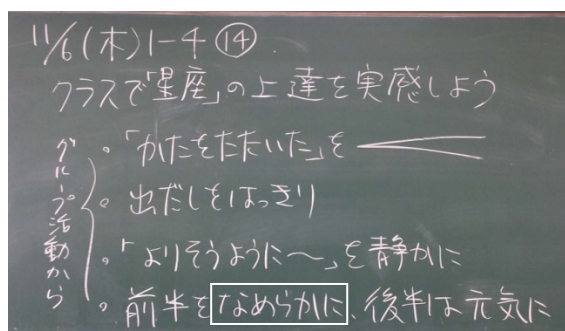 11/6(木)1-4 ⑭
クラスで「星座」の上達を実感しよう
グループ活動から
。「かたをたたいた」を
。出だしをはっきり
。「よりそうように〜」を静かに
。前半をなめらかに、後半は元気に